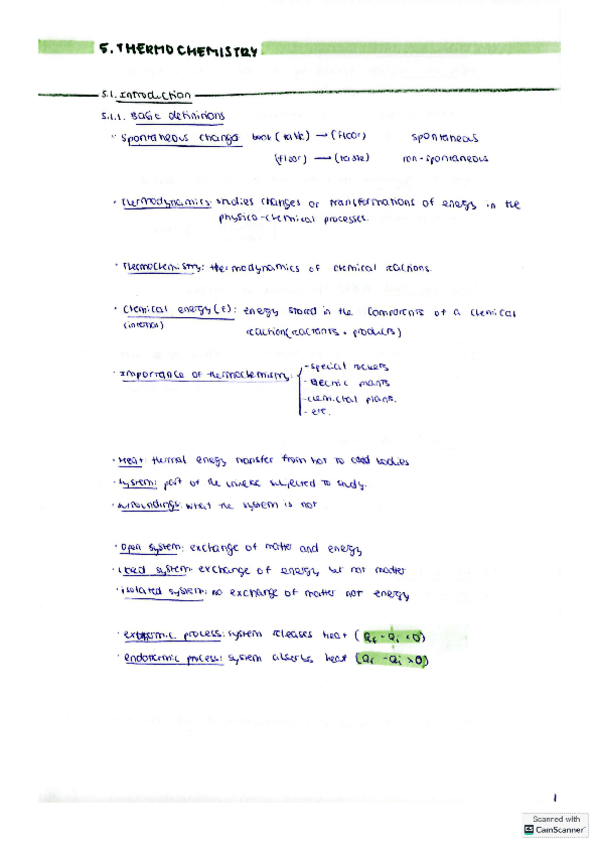 5. THERMOCHEMISTRY
5.1. Introduction
5.1.1. Basic definitions
· Spontaneous change (table) → (floor) spontaneous
(floor) → (table) non-spontaneous
· Thermodynamics: studies changes or transformations of energy in the
physico-chemical processes.
· Thermochemistry: thermodynamics of chemical reactions.
· Chemical energy (E): energy stored in the components of a chemical
(internal) reaction (reactants + products)
· Importance of thermochemistry:
- special
- Electric plants
- chemical plants.
- etc.
· Heat: thermal energy transfer from hot to cold bodies
· System: part of the universe subjected to study.
· Surroundings: what the system is not
· Open system: exchange of matter and energy
· closed system: exchange of energy but not matter
· isolated system: no exchange of matter not energy
· exothermic process: system releases heat (Qf - Qi < 0)
· endothermic process: system absorbs heat (Qf - Qi > 0)
1
Scanned with
CamScanner